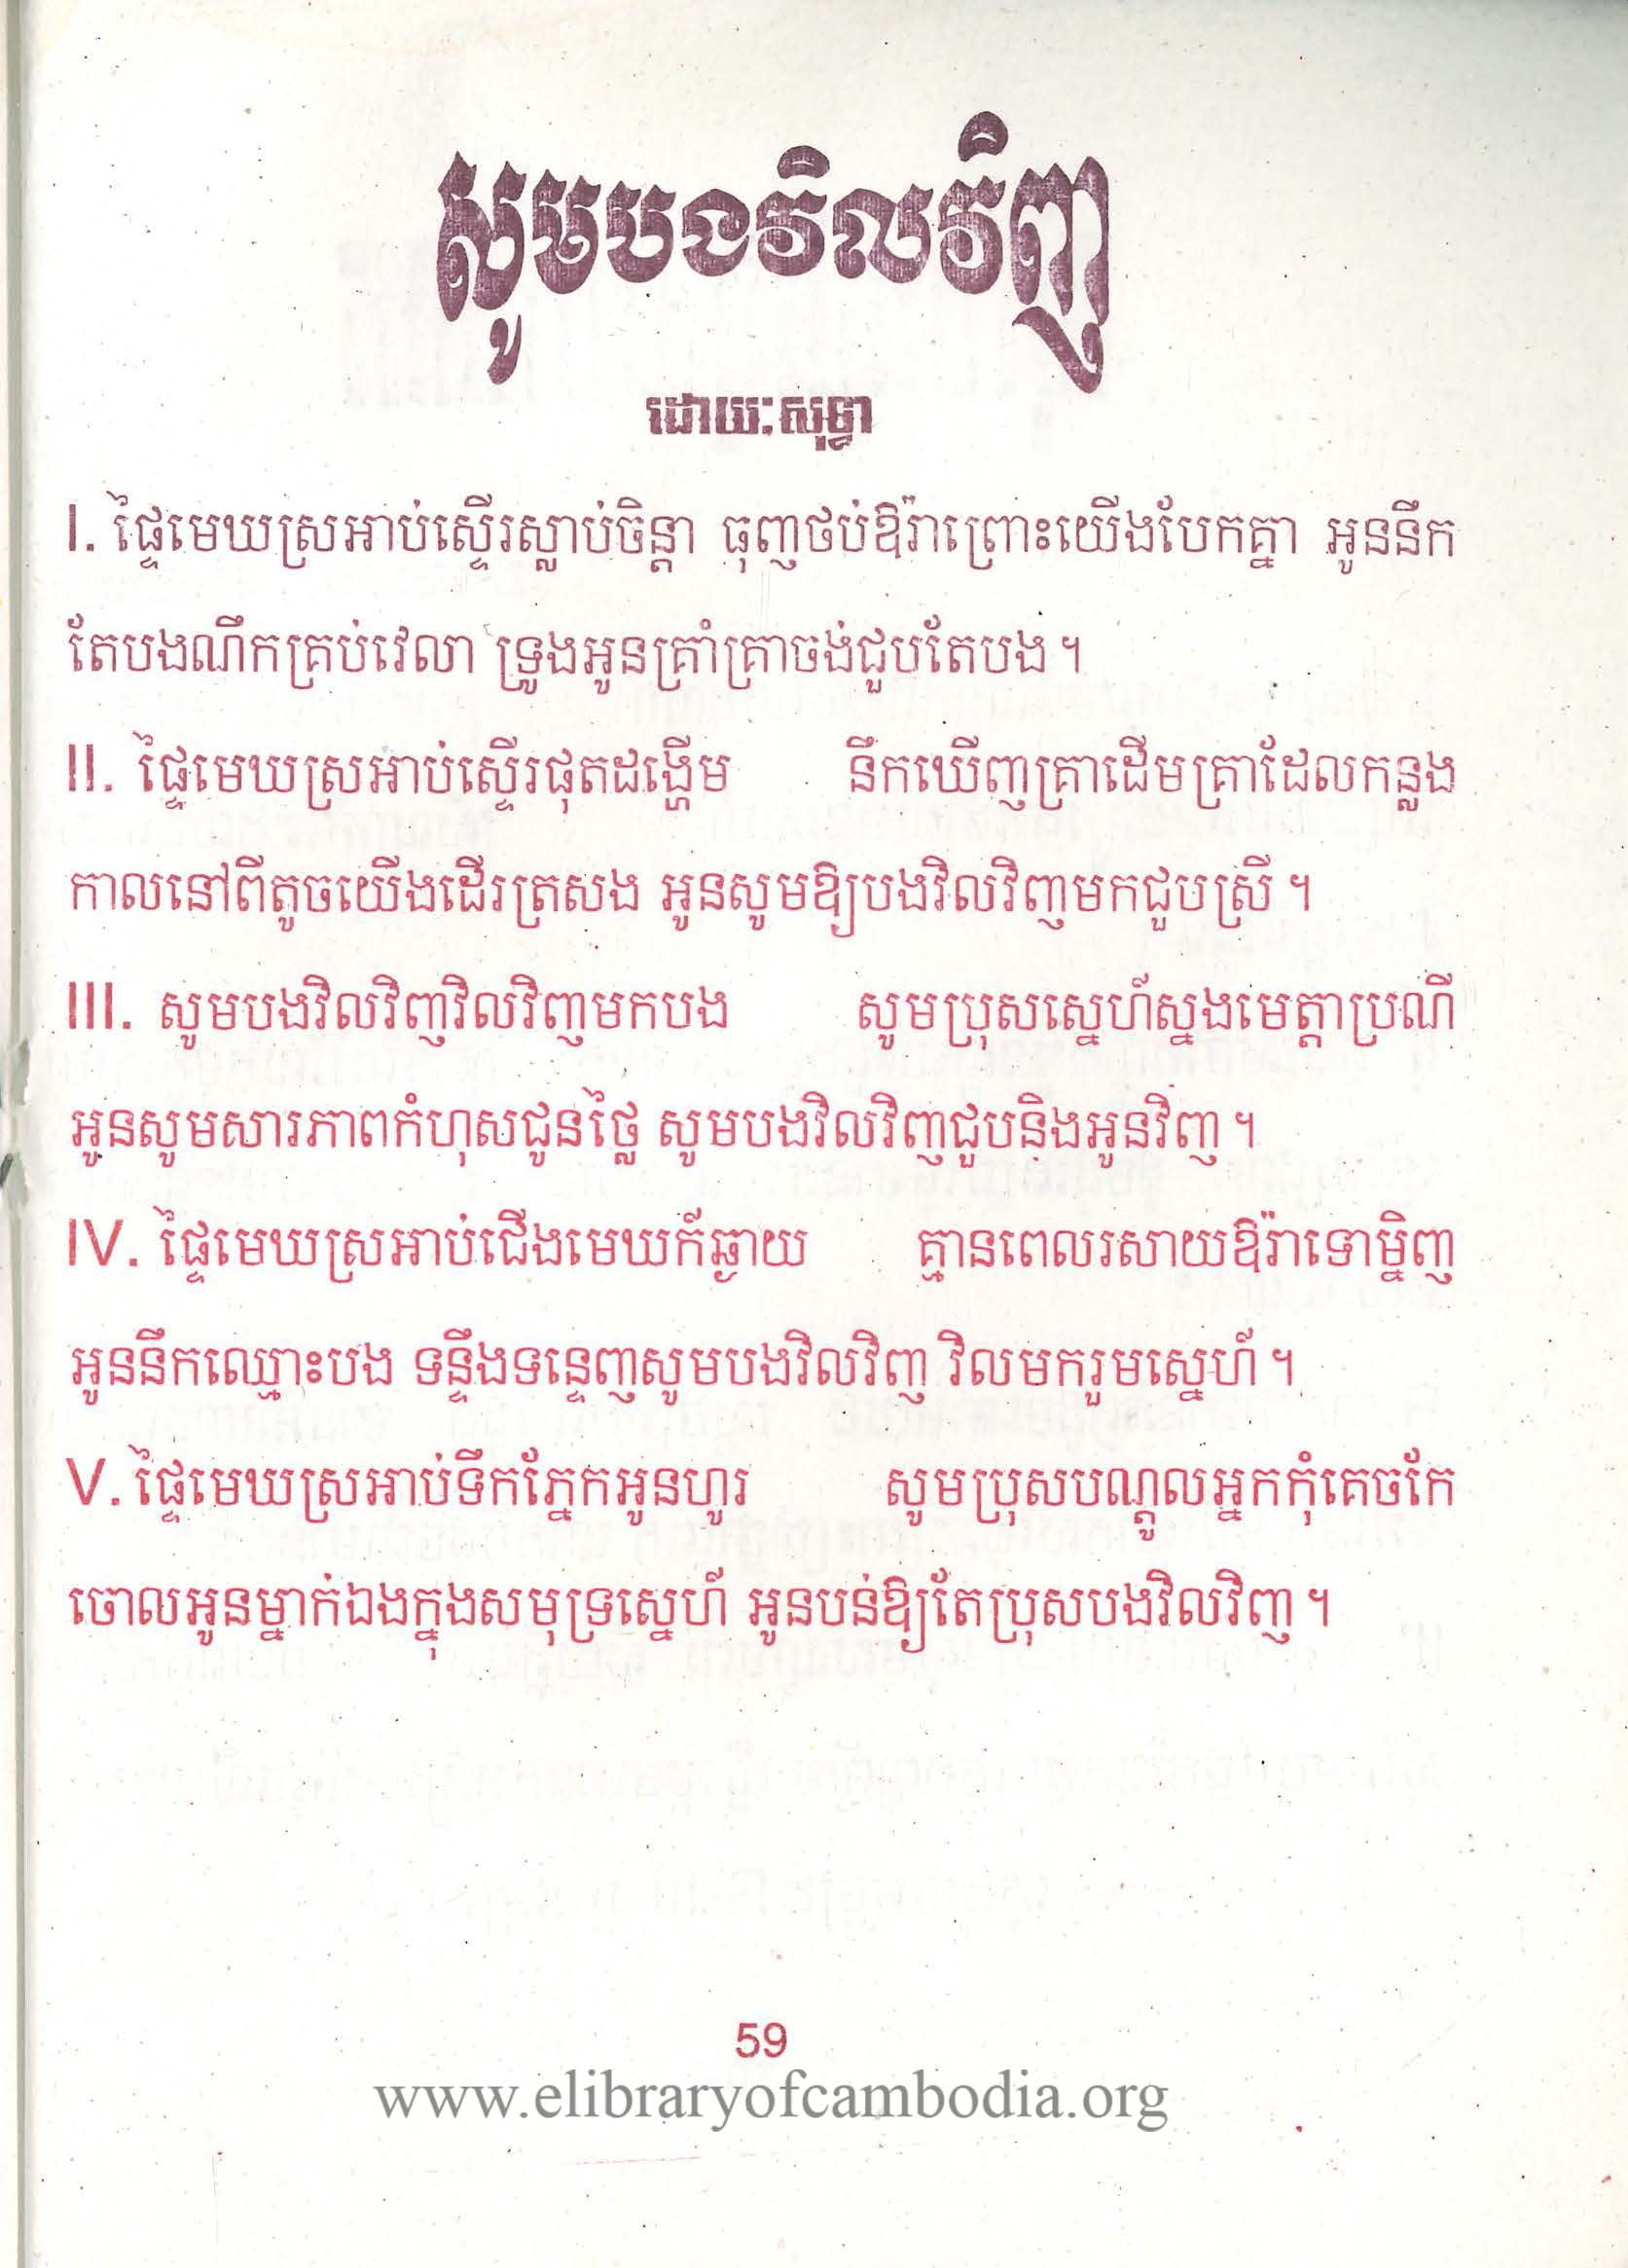 សូមបងវិលវិញ
ដោយ:សុទ្ធា
I. ផ្ទៃមេឃស្រអាប់ស្ទើរស្លាប់ចិន្តា ធុញថប់ឱរ៉ាព្រោះយើងបែកគ្នា អូននឹក
តែបងណឹកគ្រប់វេលា ទ្រូងអូនគ្រាំគ្រាចង់ជួបតែបង ។
II. ផ្ទៃមេឃស្រអាប់ស្ទើរផុតដង្ហើម នឹកឃើញគ្រាដើមគ្រាដែលកន្លង
កាលនៅពីតូចយើងដើរត្រសង អូនសូមឱ្យបងវិលវិញមកជួបស្រី ។
III. សូមបងវិលវិញវិលវិញមកបង សូមប្រុសស្នេហ៍ស្នងមេត្តាប្រណី
អូនសូមសារភាពកំហុសជូនថ្លៃ សូមបងវិលវិញជួបនិងអូនវិញ ។
IV. ផ្ទៃមេឃស្រអាប់ជើងមេឃក៍ឆ្ងាយ គ្មានពេលរសាយឱរ៉ាទោម្និញ
អូននឹកឈ្មោះបង ទន្ទឹងទន្ទេញសូមបងវិលវិញ វិលមករួមស្នេហ៍ ។
V. ផ្ទៃមេឃស្រអាប់ទឹកភ្នែកអូនហូរ សូមប្រុសបណ្តូលអ្នកកុំគេចកែ
ចោលអូនម្នាក់ឯងក្នុងសមុទ្រស្នេហ៍ អូនបន់ឱ្យតែប្រុសបងវិលវិញ ។
59
www.elibraryofcambodia.org